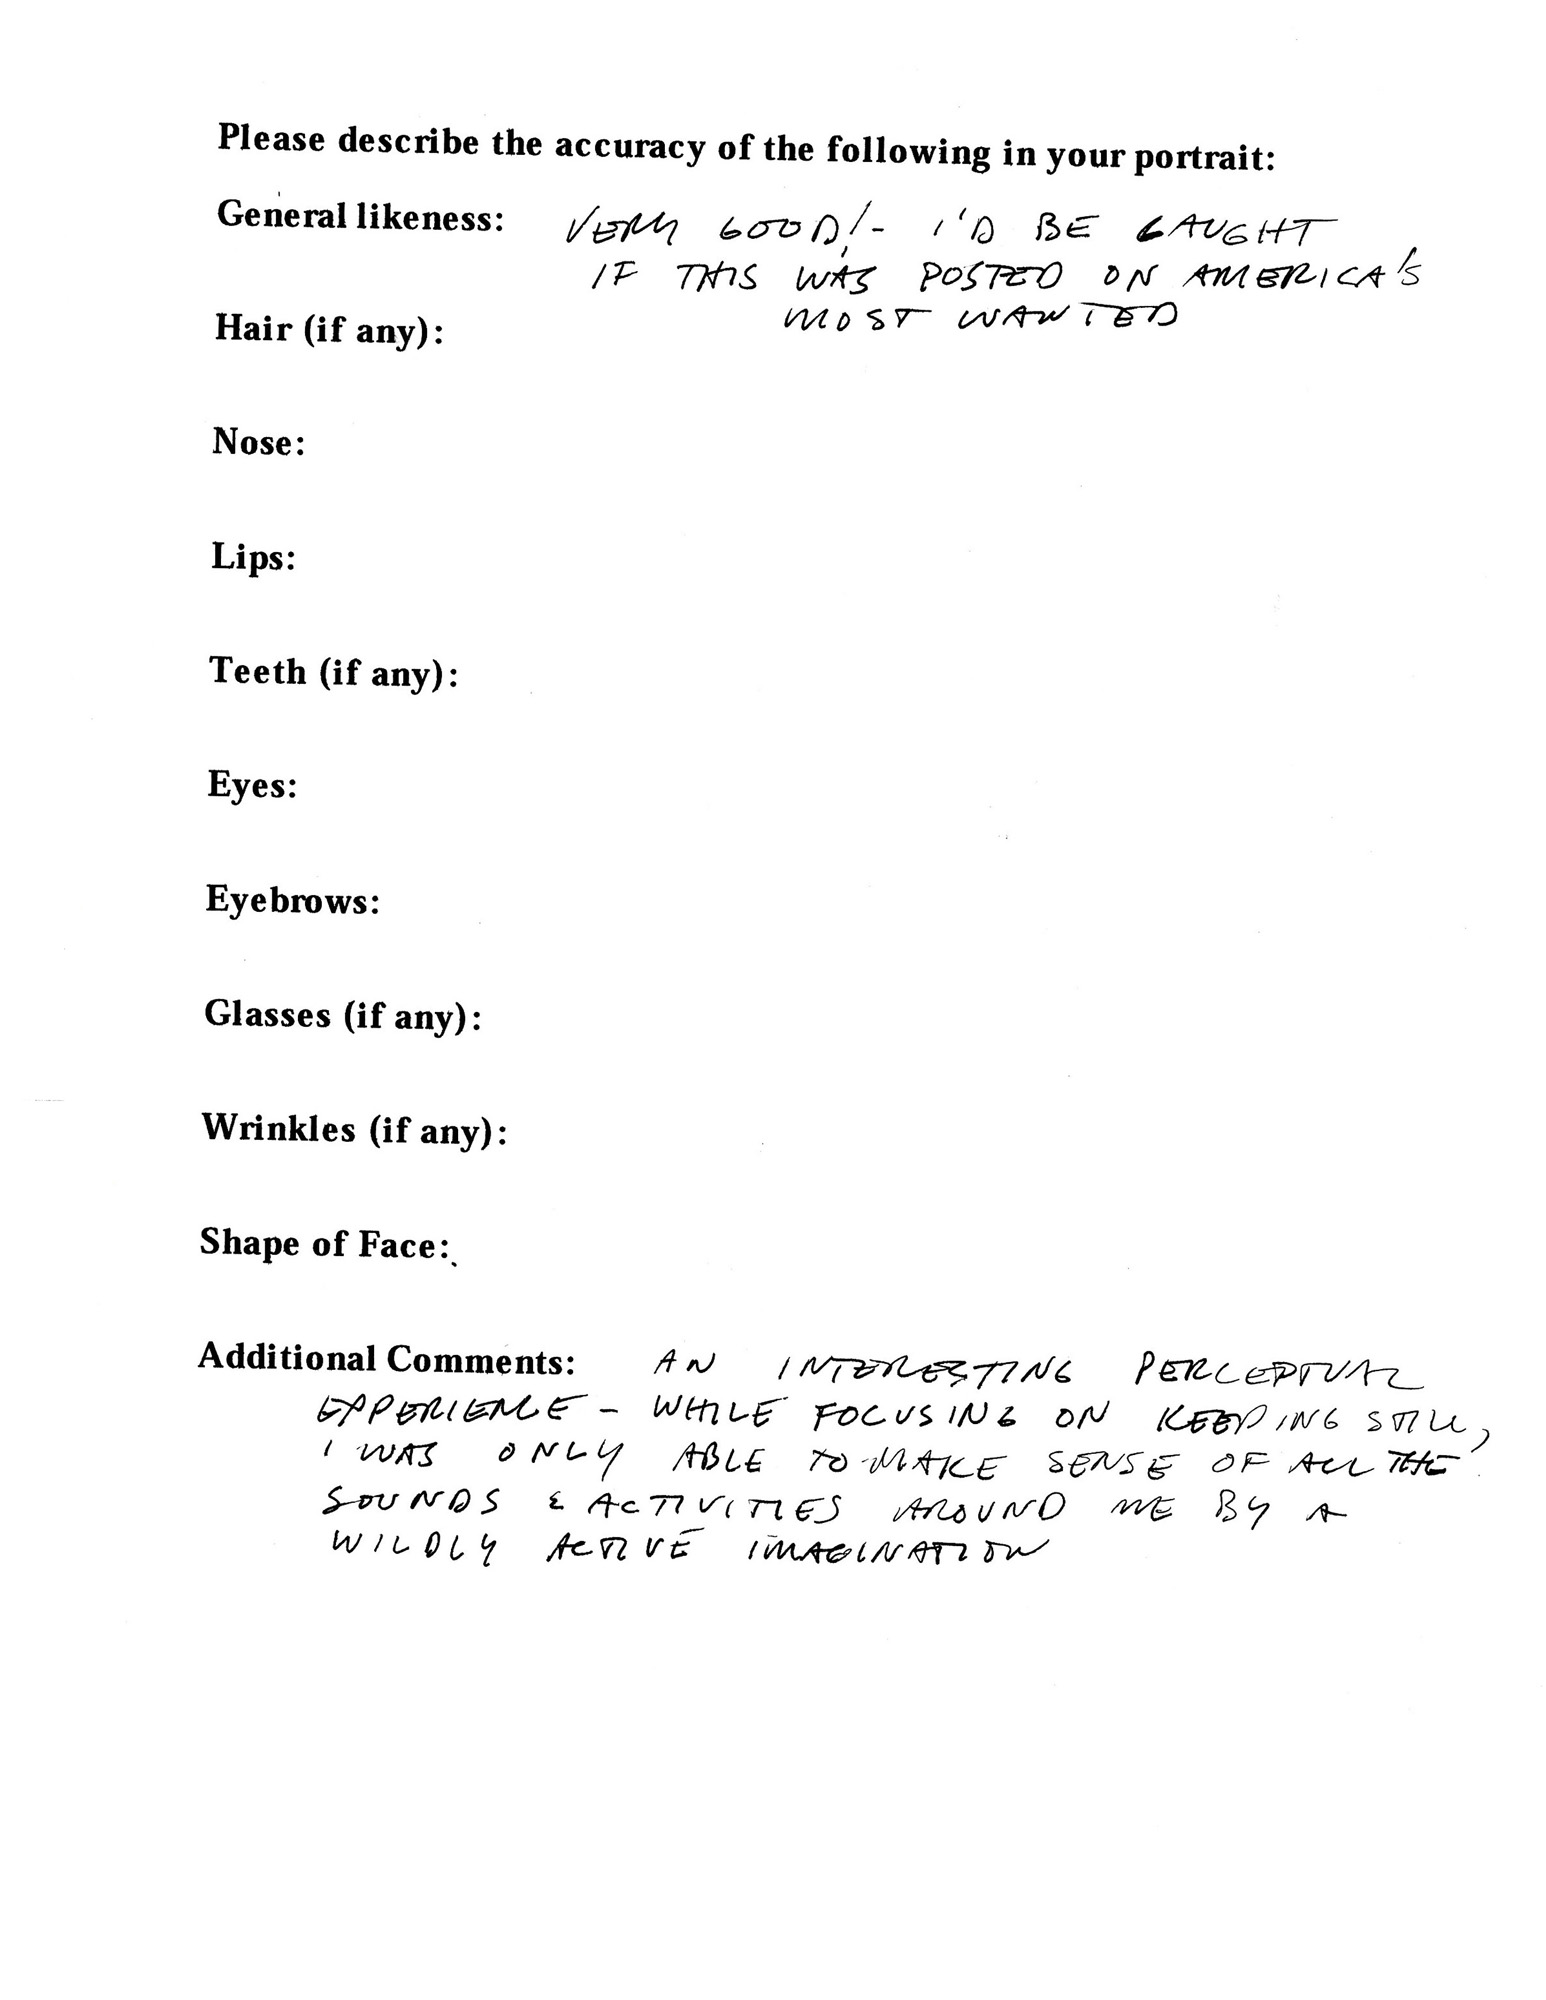 Please describe the accuracy of the following in your portrait:
General likeness: VERY GOOD! - I'D BE CAUGHT
IF THIS WAS POSTED ON AMERICA'S
MOST WANTED
Hair (if any):
Nose:
Lips:
Teeth (if any):
Eyes:
Eyebrows:
Glasses (if any):
Wrinkles (if any):
Shape of Face:
Additional Comments: AN INTERESTING PERCEPTUAL
EXPERIENCE - WHILE FOCUSING ON KEEPING STILL,
I WAS ONLY ABLE TO MAKE SENSE OF ALL THE
SOUNDS & ACTIVITIES AROUND ME BY A
WILDLY ACTIVE IMAGINATION